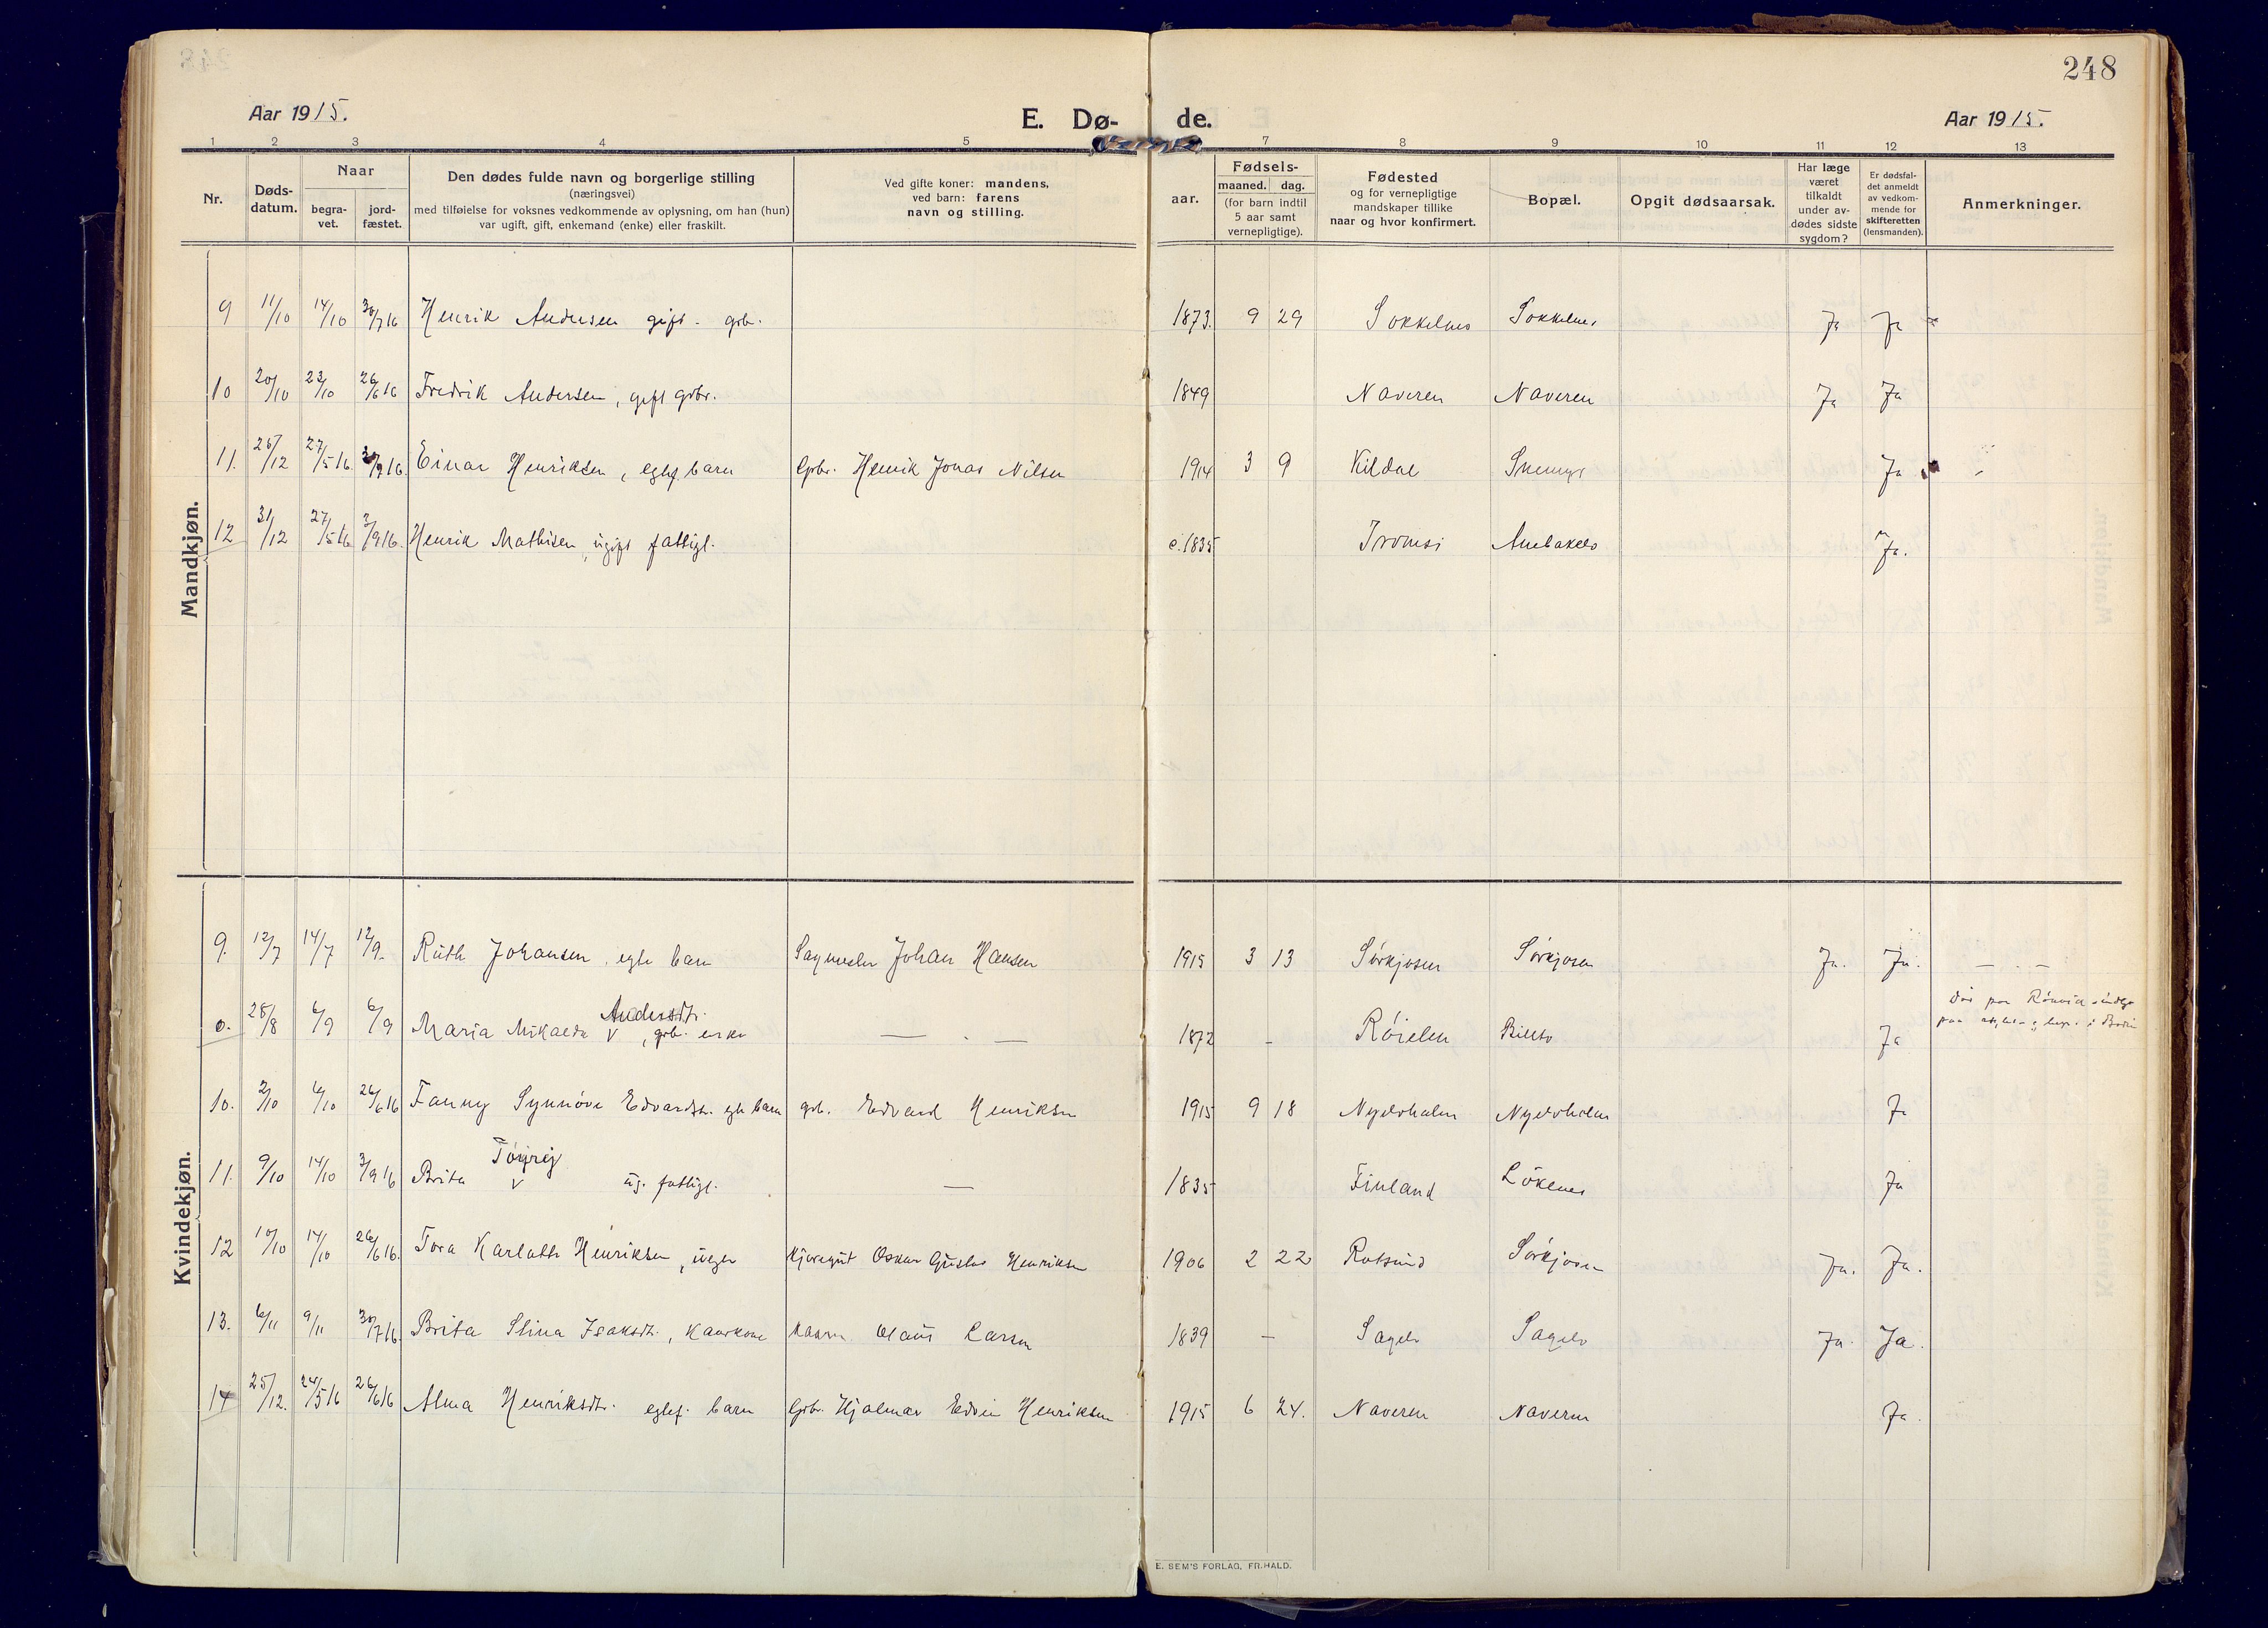 248
Aar 1915.
E. Dø- de.
Aar 1915.
1 2 3 4 5 7 8 9 10 11 12 13
Nr.
Døds-
datum.
Naar
begra-
vet.
jord-
fæstet.
Den dødes fulde navn og borgerlige stilling
(næringsvei)
med tilføielse for voksnes vedkommende av oplysning, om han (hun)
var ugift, gift, enkemand (enke) eller fraskilt.
Ved gifte koner: mandens,
ved barn: farens
navn og stilling.
aar.
Fødsels-
maaned. dag.
(for barn indtil
5 aar samt
vernepligtige).
Fødested
og for vernepligtige
mandskaper tillike
naar og hvor konfirmert.
Bopæl.
Opgit dødsaarsak.
Har læge
været
tilkaldt
under av-
dødes sidste
sygdom?
Er dødsfal-
det anmeldt
av vedkom-
mende for
skifteretten
(lensmanden).
Anmerkninger.
Mandkjøn.
9 11/10 14/10 30/7 16 Henrik Andersen gift - grb. 1873. 9 29 Sokkelnes Sokkelnes Ja Ja
10 20/10 23/10 26/6 16 Fredrik Andersen, gift grbr. 1849 Naveren Naveren Ja Ja
11. 26/12 27/5 16. Einar Henriksen, egtef. barn Grbr. Henrik Jonas Nilsen 1914 3 9 Kildal Ja
12 31/12 27/5 16 3/9 16. Henrik Mathisen, ugift fattigl. c. 1835 Ja.
Kvindekjøn.
9. 12/7 14/7 12/9. Ruth Johansen, egte barn Johan Hansen 1915 3 13 Sørkjosen Sørkjosen Ja. Ja. — . —
Andersdtr.
0. 28/8 6/9 6/9 Maria Mikaela V, grb. enke — . — 1872 - Røielen Bilto Ja
10. 2/10 6/10 26/6 16 Fanny Synnöve Edvardstr. egte barn grb. Edvard Henriksen 1915 9 18 Nyelvholm Nyelvholm Ja
11. 9/10 14/10 3/9 16 Brita V ug. fattigl. — 1835 Finland Lökenes Ja
12 10/10 14/10 26/6 16. Tora Karlotte Henriksen, Oskar Gustav Henriksen 1906 2 22 Rotsund Sørkjosen Ja. Ja.
13. 6/11 9/11 30/7 16 Brita Stina Isaksdtr., Olaus Larsen 1839 - Sagelv Sagelv Ja. Ja.
14 25/12. 24/5 16 26/6 16 Alma Henriksdtr. egtef. barn Grb. Hjalmar Edvin Henriksen 1915 6 24. Naveren Naveren Ja.
E. SEM'S FORLAG, FR.HALD.